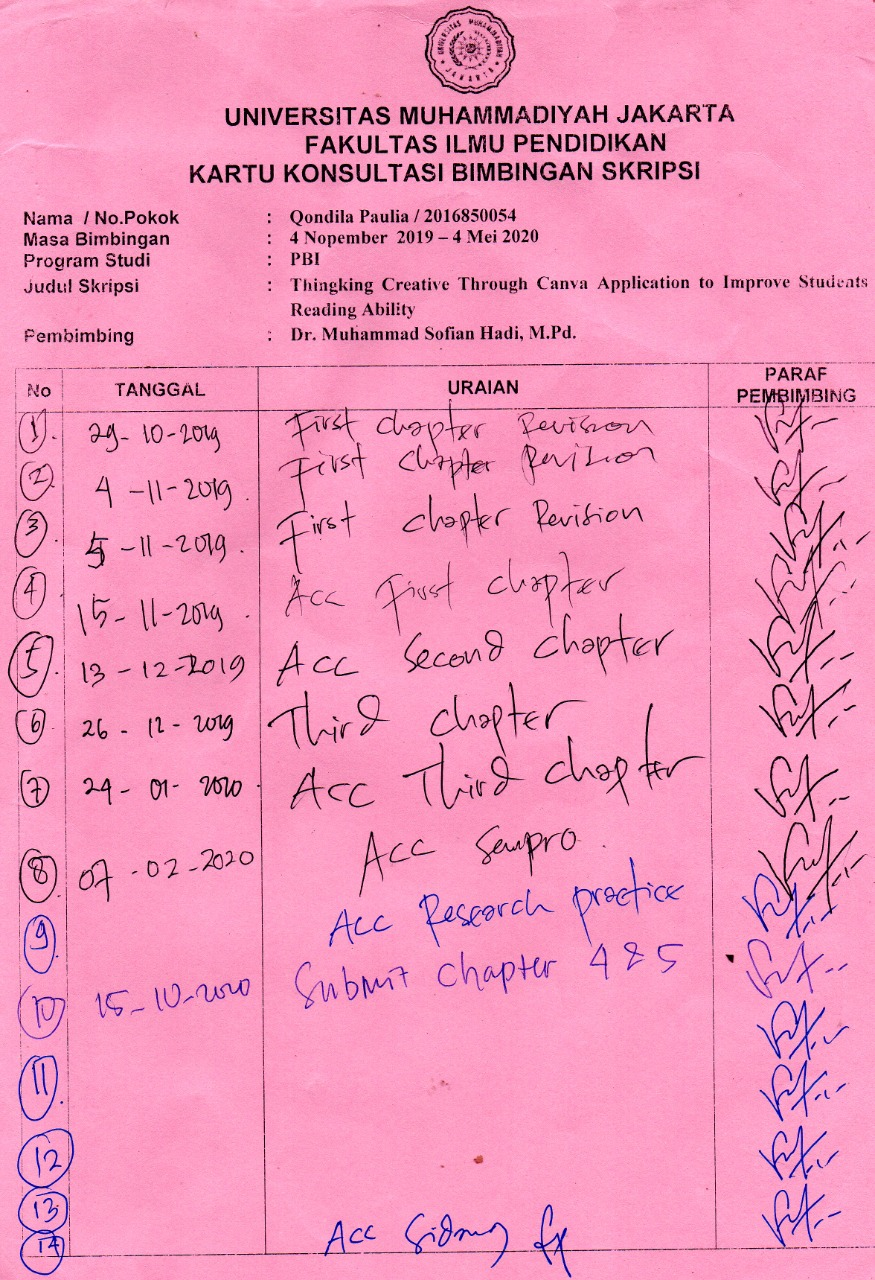 UNIVERSITAS MUHAMMADIYAH JAKARTA
UNIVERSITAS MUHAMMADIYAH JAKARTA
FAKULTAS ILMU PENDIDIKAN
KARTU KONSULTASI BIMBINGAN SKRIPSI
Nama / No.Pokok : Qondila Paulia / 2016850054
Masa Bimbingan : 4 Nopember 2019 – 4 Mei 2020
Program Studi : PBI
Judul Skripsi : Thingking Creative Through Canva Application to Improve Students
Reading Ability
Pembimbing : Dr. Muhammad Sofian Hadi, M.Pd.
No TANGGAL URAIAN PARAF PEMBIMBING
1. 29-10-2019 First chapter Revision
2. 4-11-2019. First chapter Revision
3. 5-11-2019. First chapter Revision
4. 15-11-2019. Acc First chapter
5. 13-12-2019 Acc Second chapter
6. 26-12-2019 Third chapter
7 24-01-2020. Acc Third chapter
8. 07-02-2020 Acc Sempro.
9. Acc Research practice
10 15-10-2020 Submit chapter 4 & 5
11.
12
13
14 Acc Sidang